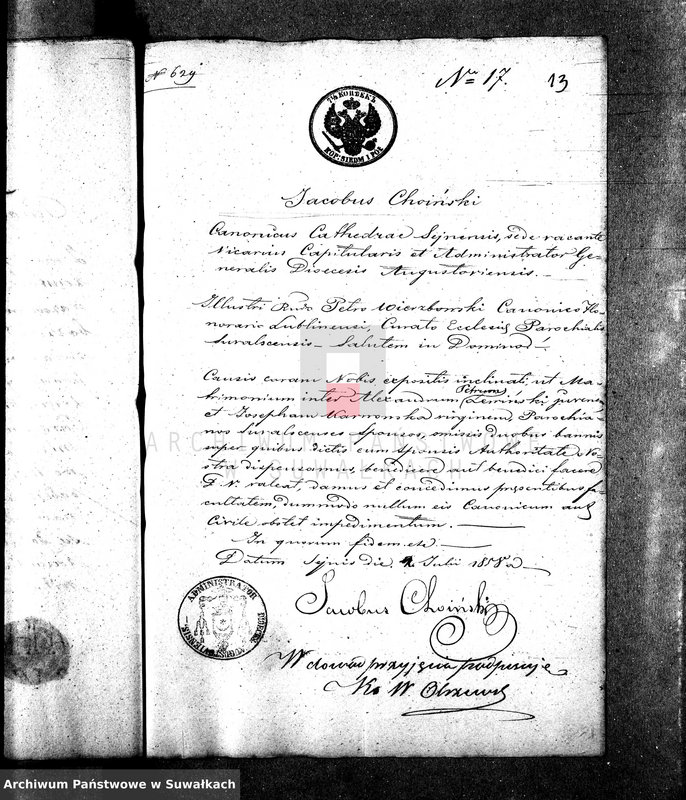 № 629
№ 17.
13
7½ КОПѢЕКЪ
KOP: SIEDM I POŁ
Jacobus Choiński
Canonicus Cathedrae Sejnensis, sede vacante
Vicarius Capitularis et Administrator Ge-
neralis Dioecesis Augustoviensis.
Illustri Rndo Petro Wierzbowski Canonico Ho-
norario Lublinensi, Curato Ecclesiae Parochialis
Suvalscensis Salutem in Domino!
Causis coram Nobis expositis inclinati, ut Ma-
trimonium inter Alexandrum Petrum Zemiński juvenem
et Josepham virginem, Parochia-
nos suvalscenses sponsos, omissis duobus bannis
super quibus dictis cum sponsis Authoritate No-
stra dispensamus, benedicere aut benedici facere
D. V. valeat, damus et concedimus praesentibus fa-
cultatem, dummodo nullum eis Canonicum aut
Civile obstet impedimentum.
In quorum fidem etc.
Datum Sejnis die 2 Julii 1858 a.
Jacobus Choiński
ADMINISTRATOR DIOECESIS AUGUSTOVIENSIS
W dowód przyjęcia podpisuje
Ks W
ARCHIWUM PAŃSTWOWE
W SUWAŁKACH
Archiwum Państwowe w Suwałkach